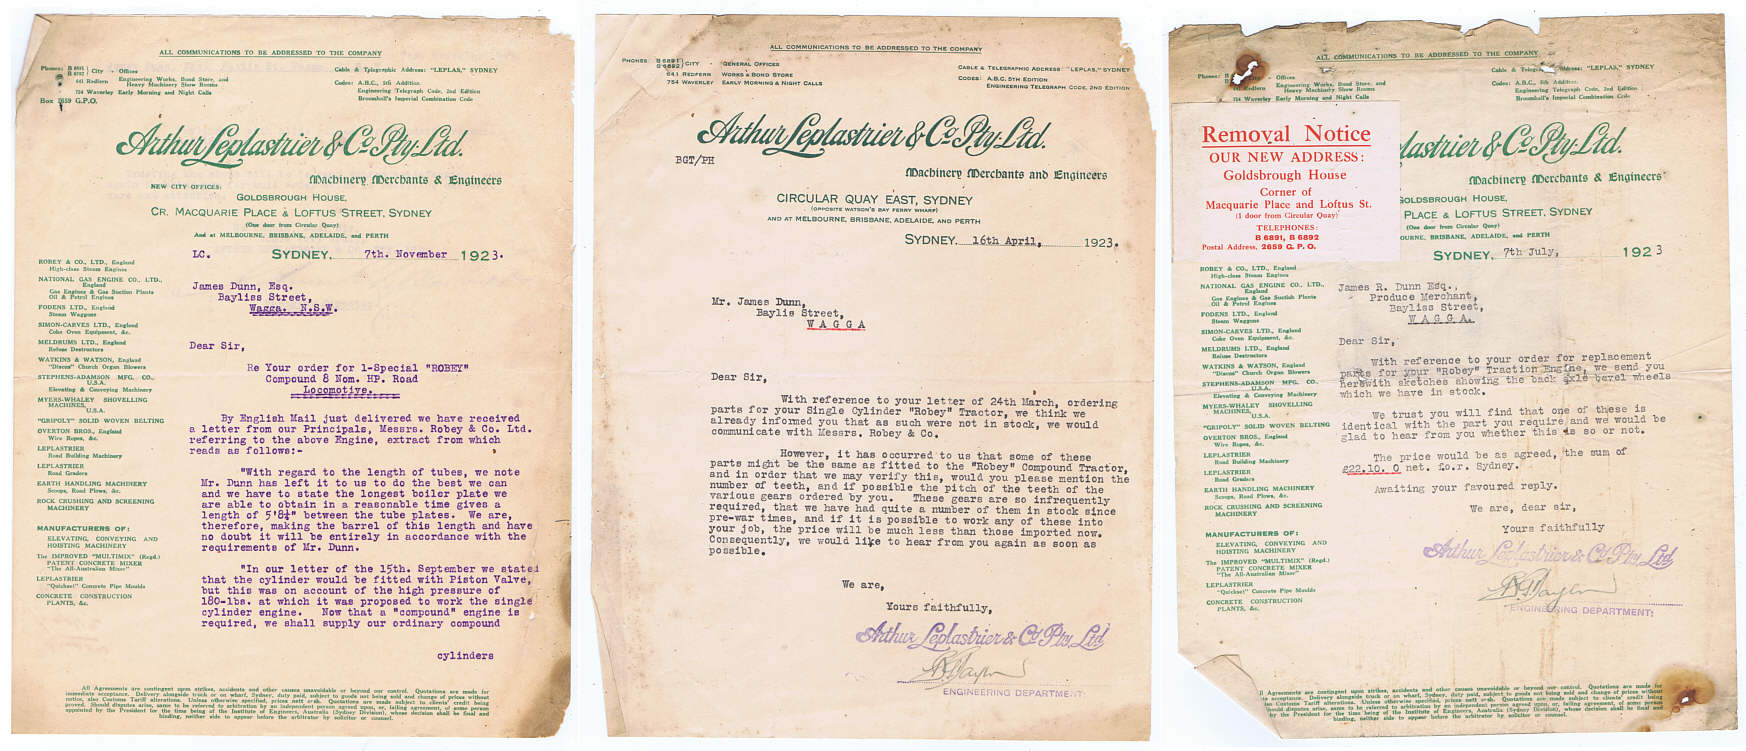 ALL COMMUNICATIONS TO BE ADDRESSED TO THE COMPANY
Phones: B 6891 B 6892 City - Offices
641 Redfern Engineering Works, Bond Store, and Heavy Machinery Show Rooms
724 Waverley Early Morning and Night Calls
Box 2659 G.P.O.
Cable & Telegraphic Address: "LEPLAS," SYDNEY
Codes: A.B.C., 5th Addition
Engineering Telegraph Code, 2nd Edition
Broomhall's Imperial Combination Code
Arthur Leplastrier & Co Pty. Ltd.
Machinery Merchants & Engineers
NEW CITY OFFICES:
GOLDSBROUGH HOUSE,
CR. MACQUARIE PLACE & LOFTUS STREET, SYDNEY
(One door from Circular Quay)
And at MELBOURNE, BRISBANE, ADELAIDE, and PERTH
LC. SYDNEY, 7th. November 1923.
ROBEY & CO., LTD., England
High-class Steam Engines
NATIONAL GAS ENGINE CO., LTD.,
England
Gas Engines & Gas Suction Plants
Oil & Petrol Engines
FODENS LTD., England
Steam Waggons
SIMON-CARVES LTD., England
Coke Oven Equipment, &c.
MELDRUMS LTD., England
Refuse Destructors
WATKINS & WATSON, England
"Discus" Church Organ Blowers
STEPHENS-ADAMSON MFG. CO.,
U.S.A.
Elevating & Conveying Machinery
MYERS-WHALEY SHOVELLING
MACHINES,
U.S.A.
"GRIPOLY" SOLID WOVEN BELTING
OVERTON BROS., England
Wire Ropes, &c.
LEPLASTRIER
Road Building Machinery
LEPLASTRIER
Road Graders
EARTH HANDLING MACHINERY
Scoops, Road Plows, &c.
ROCK CRUSHING AND SCREENING
MACHINERY
MANUFACTURERS OF:
ELEVATING, CONVEYING AND
HOISTING MACHINERY
The IMPROVED "MULTIMIX" (Regd.)
PATENT CONCRETE MIXER
"The All-Australian Mixer"
LEPLASTRIER
"Quickset" Concrete Pipe Moulds
CONCRETE CONSTRUCTION
PLANTS, &c.
James Dunn, Esq.
Bayliss Street,
Wagga. N.S.W.
Dear Sir,
Re Your order for 1-Special "ROBEY"
Compound 8 Nom. HP. Road
Locomotive.
By English Mail just delivered we have received
a letter from our Principals, Messrs. Robey & Co. Ltd.
referring to the above Engine, extract from which
reads as follows:-
"With regard to the length of tubes, we note
Mr. Dunn has left it to us to do the best we can
and we have to state the longest boiler plate we
are able to obtain in a reasonable time gives a
length of 5'8¼" between the tube plates. We are,
therefore, making the barrel of this length and have
no doubt it will be entirely in accordance with the
requirements of Mr. Dunn.
"In our letter of the 15th. September we stated
that the cylinder would be fitted with Piston Valve,
but this was on account of the high pressure of
180-lbs. at which it was proposed to work the single
cylinder engine. Now that a "compound" engine is
required, we shall supply our ordinary compound
cylinders
All Agreements are contingent upon strikes, accidents and other causes unavoidable or beyond our control. Quotations are made for
immediate acceptance. Delivery alongside truck or on wharf, Sydney, duty paid, subject to goods not being sold and change of prices without
notice, also Customs Tariff alterations. Unless otherwise specified, prices nett cash. Quotations are made subject to clients' credit being
proved. Should disputes arise, same to be referred to arbitration by an independent person agreed upon, or, failing agreement, of some person
appointed by the President for the time being of the Institute of Engineers, Australia (Sydney Division), whose decision shall be final and
binding, neither side to appear before the arbitrator by solicitor or counsel.
ALL COMMUNICATIONS TO BE ADDRESSED TO THE COMPANY
PHONES: B 6891 B 6892 CITY - GENERAL OFFICES
641 REDFERN WORKS & BOND STORE
754 WAVERLEY EARLY MORNING & NIGHT CALLS
CABLE & TELEGRAPHIC ADDRESS: "LEPLAS," SYDNEY
CODES: A.B.C. 5TH EDITION
ENGINEERING TELEGRAPH CODE, 2ND EDITION
Arthur Leplastrier & Co Pty. Ltd.
BGT/PH
Machinery Merchants and Engineers
CIRCULAR QUAY EAST, SYDNEY
(OPPOSITE WATSON'S BAY FERRY WHARF)
AND AT MELBOURNE, BRISBANE, ADELAIDE, AND PERTH
SYDNEY, 16th April, 1923.
Mr. James Dunn,
Baylis Street,
WAGGA
Dear Sir,
With reference to your letter of 24th March, ordering
parts for your Single Cylinder "Robey" Tractor, we think we
already informed you that as such were not in stock, we would
communicate with Messrs. Robey & Co.
However, it has occurred to us that some of these
parts might be the same as fitted to the "Robey" Compound Tractor,
and in order that we may verify this, would you please mention the
number of teeth, and if possible the pitch of the teeth of the
various gears ordered by you. These gears are so infrequently
required, that we have had quite a number of them in stock since
pre-war times, and if it is possible to work any of these into
your job, the price will be much less than those imported now.
Consequently, we would like to hear from you again as soon as
possible.
We are,
Yours faithfully,
Arthur Leplastrier & Co Pty. Ltd
ENGINEERING DEPARTMENT:
ALL COMMUNICATIONS TO BE ADDRESSED TO THE COMPANY
Phones: Offices
Redfern Engineering Works, Bond Store, and Heavy Machinery Show Rooms
724 Waverley Early Morning and Night Calls
Cable & Address: "LEPLAS," SYDNEY
Codes: A.B.C., 5th Addition
Engineering Telegraph Code, 2nd Edition
Broomhall's Imperial Combination Code
Removal Notice
OUR NEW ADDRESS:
Goldsbrough House
Corner of
Macquarie Place and Loftus St.
(1 door from Circular Quay)
TELEPHONES:
B 6891, B 6892
Postal Address, 2659 G. P. O.
lastrier & Co Pty. Ltd.
Machinery Merchants & Engineers
GOLDSBROUGH HOUSE,
PLACE & LOFTUS STREET, SYDNEY
(One door from Circular Quay)
BOURNE, BRISBANE, ADELAIDE, and PERTH
SYDNEY, 7th July, 1923
ROBEY & CO., LTD., England
High-class Steam Engines
NATIONAL GAS ENGINE CO., LTD.,
England
Gas Engines & Gas Suction Plants
Oil & Petrol Engines
FODENS LTD., England
Steam Waggons
SIMON-CARVES LTD., England
Coke Oven Equipment, &c.
MELDRUMS LTD., England
Refuse Destructors
WATKINS & WATSON, England
"Discus" Church Organ Blowers
STEPHENS-ADAMSON MFG. CO.,
U.S.A.
Elevating & Conveying Machinery
MYERS-WHALEY SHOVELLING
MACHINES,
U.S.A.
"GRIPOLY" SOLID WOVEN BELTING
OVERTON BROS., England
Wire Ropes, &c.
LEPLASTRIER
Road Building Machinery
LEPLASTRIER
Road Graders
EARTH HANDLING MACHINERY
Scoops, Road Plows, &c.
ROCK CRUSHING AND SCREENING
MACHINERY
MANUFACTURERS OF:
ELEVATING, CONVEYING AND
HOISTING MACHINERY
The IMPROVED "MULTIMIX" (Regd.)
PATENT CONCRETE MIXER
"The All-Australian Mixer"
LEPLASTRIER
"Quickset" Concrete Pipe Moulds
CONCRETE CONSTRUCTION
PLANTS, &c.
James R. Dunn Esq.,
Produce Merchant,
Bayliss Street,
WAGGA.
Dear Sir,
With reference to your order for replacement
parts for your "Robey" Traction Engine, we send you
herewith sketches showing the back axle bevel wheels
which we have in stock.
We trust you will find that one of these is
identical with the part you require and we would be
glad to hear from you whether this is so or not.
The price would be as agreed, the sum of
£22.10. 0 net. f.o.r. Sydney.
Awaiting your favoured reply.
We are, dear sir,
Yours faithfully
Arthur Leplastrier & Co Pty. Ltd
ENGINEERING DEPARTMENT:
All Agreements are contingent upon strikes, accidents and other causes unavoidable or beyond our control. Quotations are made for
acceptance. Delivery alongside truck or on wharf, Sydney, duty paid, subject to goods not being sold and change of prices without
Customs Tariff alterations. Unless otherwise specified, prices nett cash. Quotations are made subject to clients' credit being
Should disputes arise, same to be referred to arbitration by an independent person agreed upon, or, failing agreement, of some person
by the President for the time being of the Institute of Engineers, Australia (Sydney Division), whose decision shall be final and
binding, neither side to appear before the arbitrator by solicitor or counsel.